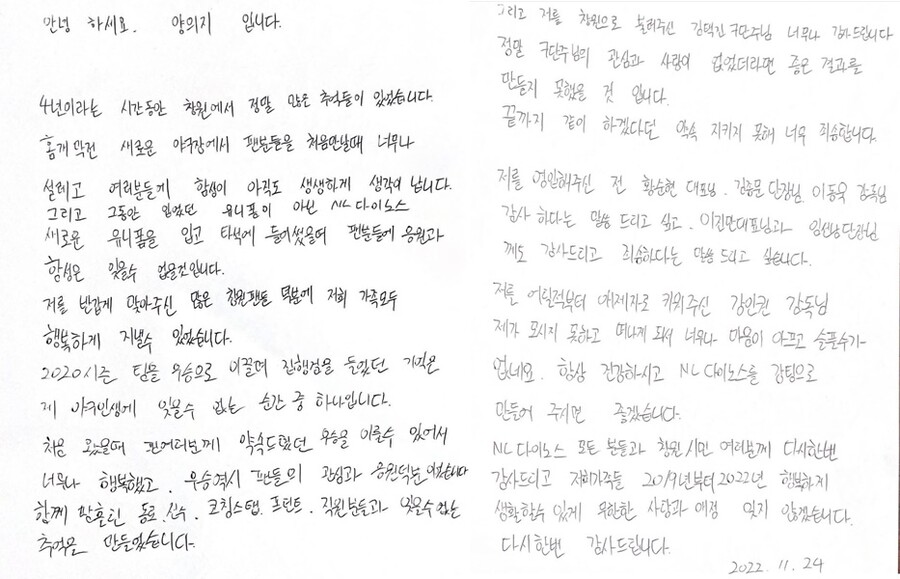 안녕 하세요. 양의지 입니다.
4년이라는 시간동안 창원에서 정말 많은 추억들이 있었습니다.
홈개막전 새로운 야구장에서 팬분들을 처음만날때 너무나
설레고 여러분들께 함성이 아직도 생생하게 생각이 납니다.
그리고 그동안 입었던 유니폼이 아닌 NC 다이노스
새로운 유니폼을 입고 타석에 들어섰을때 팬분들에 응원과
함성은 잊을수 없을것입니다.
저를 반갑게 맞아주신 많은 창원팬들 덕분에 저희 가족모두
행복하게 지낼수 있었습니다.
2020시즌 팀을 우승으로 이끌며 집행검을 들었던 기억은
제 야구인생에 잊을수 없는 순간 중 하나입니다.
처음 왔을때 팬여러분께 약속드렸던 우승을 이룰수 있어서
너무나 행복했고. 우승역시 팬들의 관심과 응원덕분이었습니다
함께 땀흘린 동료.선수. 코칭스탭. 프런트. 직원분들과 잊을수 없는
추억을 만들었습니다.
그리고 저를 창원으로 불러주신 김택진 구단주님 너무나 감사드립니다
정말 구단주님의 관심과 사랑이 없었더라면 좋은 결과를
만들지 못했을 것 입니다.
끝까지 같이 하겠다던 약속 지키지 못해 너무 죄송합니다.
저를 영입해주신 전 황순현 대표님. 김종문 단장님. 이동욱 감독님
감사 하다는 말씀 드리고 싶고. 이진만대표님과 임선남단장님
께도 감사드리고 죄송하다는 말씀 드리고 싶습니다.
저를 어릴적부터 애제자로 키워주신 강인권 감독님
제가 모시지 못하고 떠나게 되서 너무나 마음이 아프고 슬플수가
없네요. 항상 건강하시고 NC 다이노스를 강팀으로
만들어 주시면 좋겠습니다.
NC 다이노스 모든 분들과 창원 시민 여러분께 다시한번
감사드리고 저희가족들 2019년부터 2022년 행복하게
생활할수 있게 무한한 사랑과 애정 잊지 않겠습니다.
다시한번 감사드립니다.
2022. 11. 24